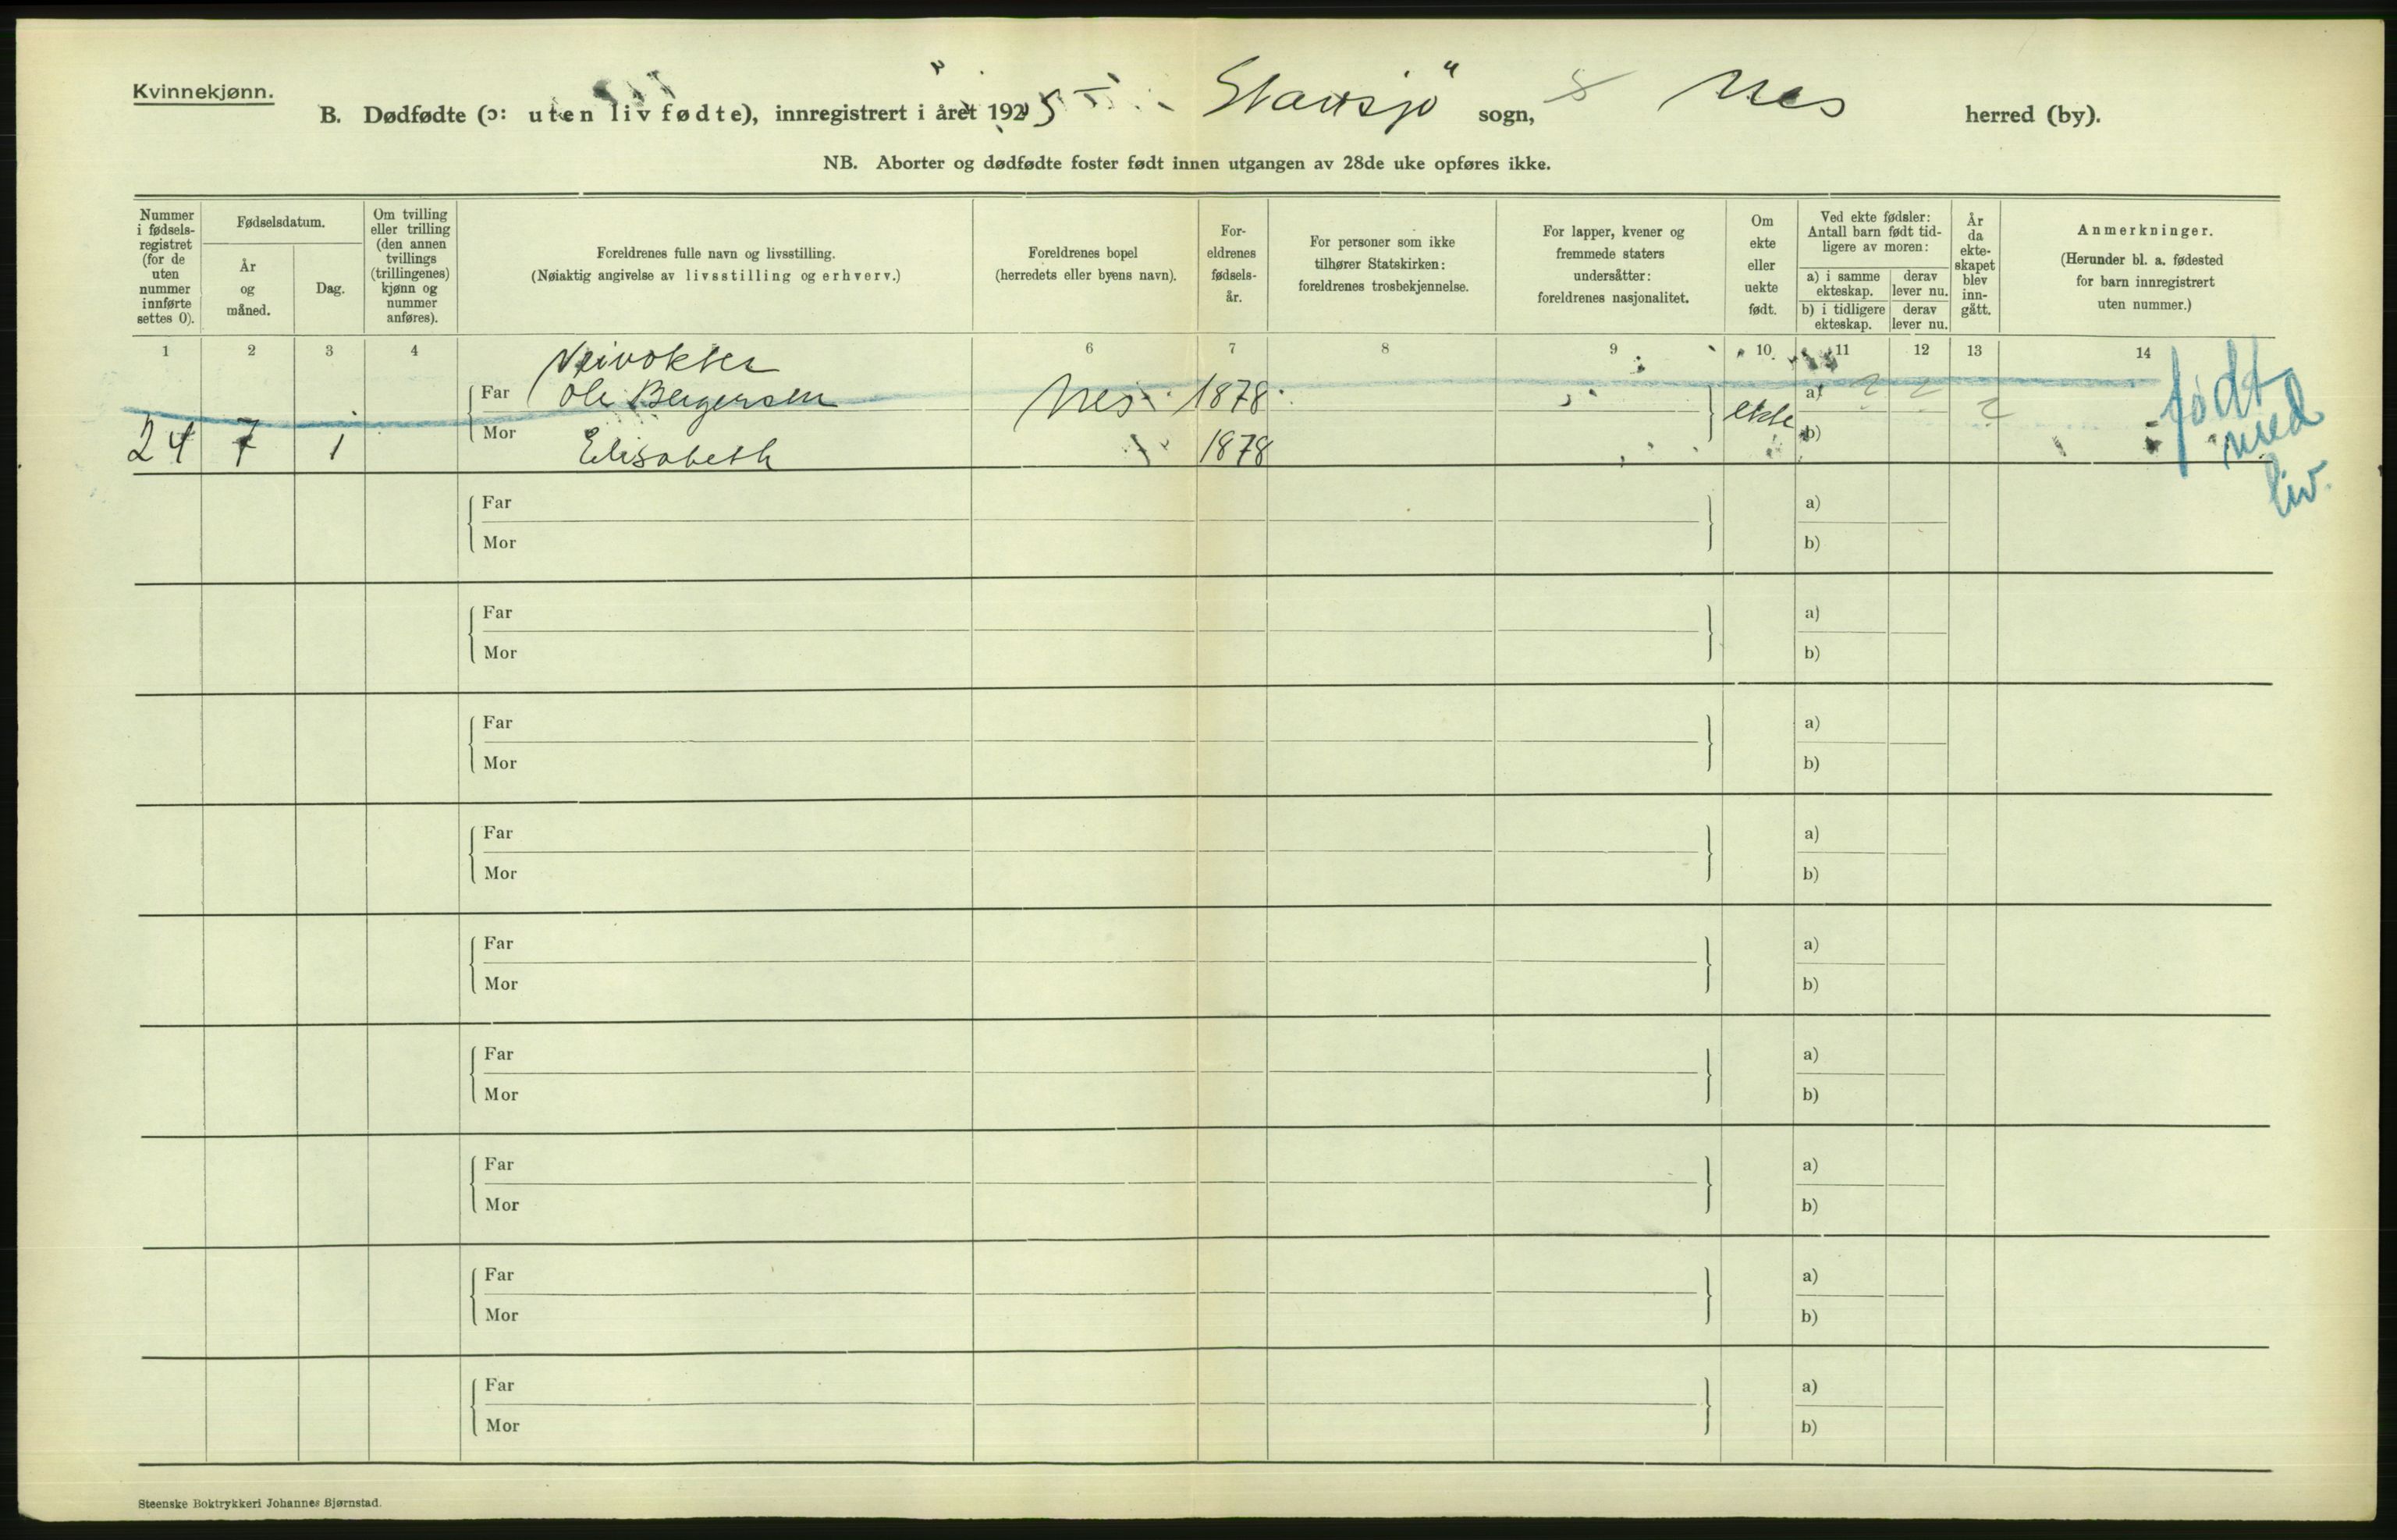 Kvinnekjønn.
B. Dødfødte (ɔ: uten liv fødte), innregistrert i året 1925 i Stavsjö sogn, Nes herred (by).
NB. Aborter og dødfødte foster født innen utgangen av 28de uke opføres ikke.
Nummer i fødsels-registret (for de uten nummer innførte settes 0).
Fødselsdatum.
År og måned.
Dag.
Om tvilling eller trilling (den annen tvillings (trillingenes) kjønn og nummer anføres).
Foreldrenes fulle navn og livsstilling.
(Nøiaktig angivelse av livsstilling og erhverv.)
Foreldrenes bopel
(herredets eller byens navn).
For-eldrenes fødsels-år.
For personer som ikke tilhører Statskirken: foreldrenes trosbekjennelse.
For lapper, kvener og fremmede staters undersåtter: foreldrenes nasjonalitet.
Om ekte eller uekte født.
Ved ekte fødsler: Antall barn født tid-ligere av moren:
a) i samme ekteskap.
derav lever nu.
b) i tidligere ekteskap.
derav lever nu.
År da ekte-skapet blev inn-gått.
Anmerkninger.
(Herunder bl. a. fødested for barn innregistrert uten nummer.)
1 2 3 4 6 7 8 9 10 11 12 13 14
Veivokter
Far Ole Bergersen Nes 1878 ekte a) ? ? ? født
24 7 1 Mor Elisabeth 1878 b) med
liv.
Far a)
Mor b)
Far a)
Mor b)
Far a)
Mor b)
Far a)
Mor b)
Far a)
Mor b)
Far a)
Mor b)
Far a)
Mor b)
Far a)
Mor b)
Far a)
Mor b)
Steenske Boktrykkeri Johannes Bjørnstad.